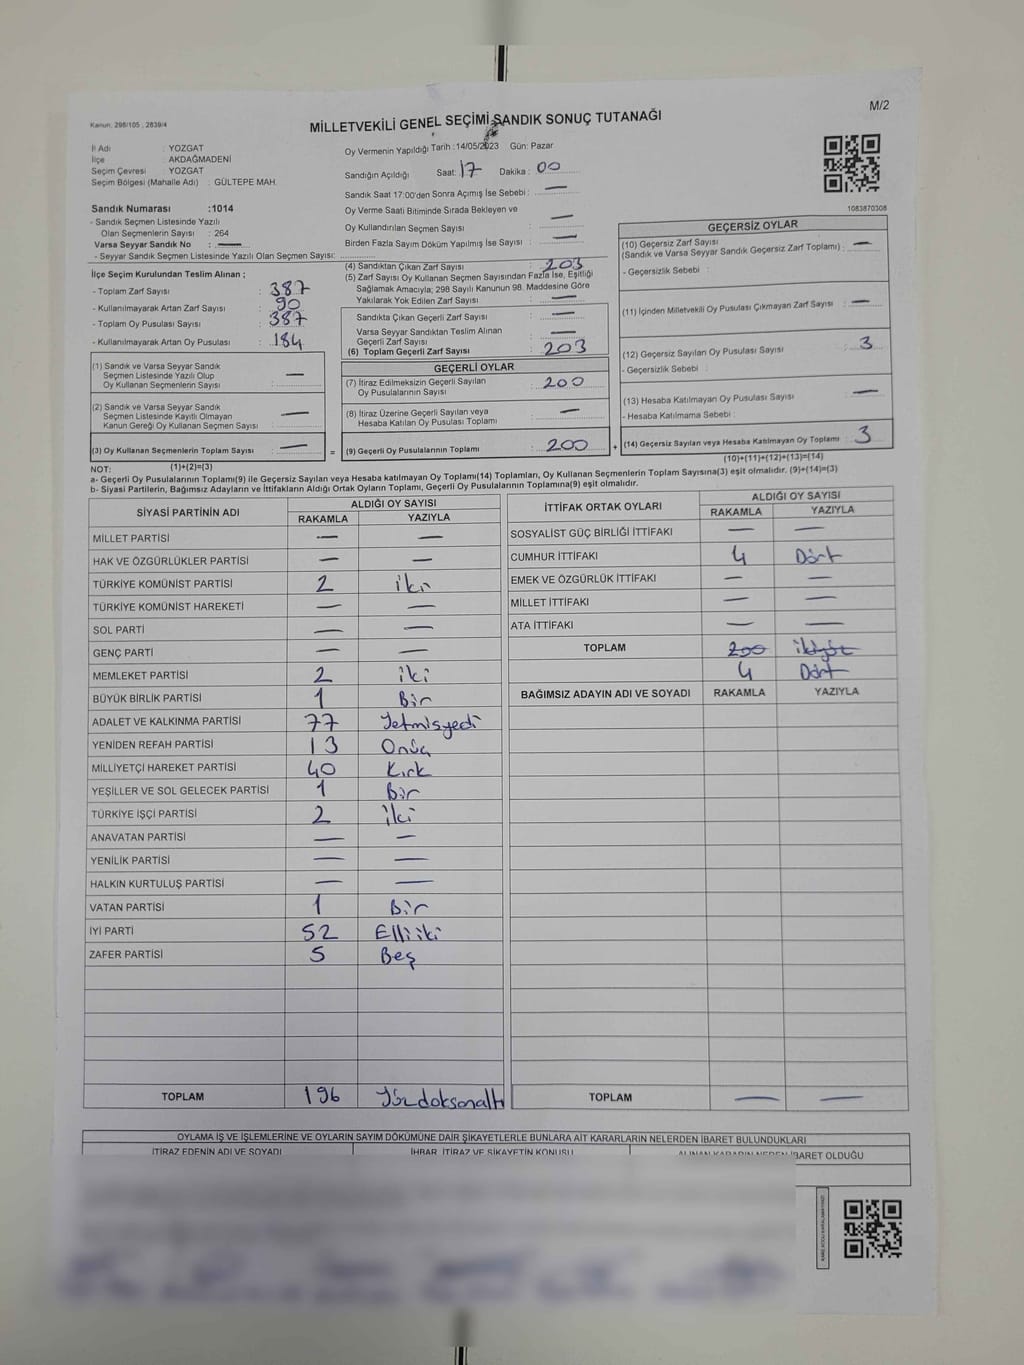 M/2
Kanun: 298/105 , 2839/4
MİLLETVEKİLİ GENEL SEÇİMİ SANDIK SONUÇ TUTANAĞI
İl Adı : YOZGAT
İlçe : AKDAĞMADENİ
Seçim Çevresi : YOZGAT
Seçim Bölgesi (Mahalle Adı) : GÜLTEPE MAH.
Sandık Numarası :1014
- Sandık Seçmen Listesinde Yazılı
Olan Seçmenlerin Sayısı : 264
Varsa Seyyar Sandık No : —
- Seyyar Sandık Seçmen Listesinde Yazılı Olan Seçmen Sayısı:
Oy Vermenin Yapıldığı Tarih :14/05/2023 Gün: Pazar
Sandığın Açıldığı Saat: 17 Dakika : 00
Sandık Saat 17:00'den Sonra Açımış İse Sebebi : —
Oy Verme Saati Bitiminde Sırada Bekleyen ve
Oy Kullandırılan Seçmen Sayısı —
Birden Fazla Sayım Döküm Yapılmış İse Sayısı : —
1083870308
İlçe Seçim Kurulundan Teslim Alınan ;
- Toplam Zarf Sayısı : 387
- Kullanılmayarak Artan Zarf Sayısı : 90
- Toplam Oy Pusulası Sayısı : 387
- Kullanılmayarak Artan Oy Pusulası : 184
(1) Sandık ve Varsa Seyyar Sandık
Seçmen Listesinde Yazılı Olup
Oy Kullanan Seçmenlerin Sayısı : —
(2) Sandık ve Varsa Seyyar Sandık
Seçmen Listesinde Kayıtlı Olmayan
Kanun Gereği Oy Kullanan Seçmen Sayısı : —
(3) Oy Kullanan Seçmenlerin Toplam Sayısı : —
(4) Sandıktan Çıkan Zarf Sayısı : 203
(5) Zarf Sayısı Oy Kullanan Seçmen Sayısından Fazla İse, Eşitliği
Sağlamak Amacıyla; 298 Sayılı Kanunun 98. Maddesine Göre
Yakılarak Yok Edilen Zarf Sayısı : —
Sandıkta Çıkan Geçerli Zarf Sayısı : —
Varsa Seyyar Sandıktan Teslim Alınan
Geçerli Zarf Sayısı : —
(6) Toplam Geçerli Zarf Sayısı : 203
GEÇERLİ OYLAR
(7) İtiraz Edilmeksizin Geçerli Sayılan
Oy Pusulalarının Sayısı : 200
(8) İtiraz Üzerine Geçerli Sayılan veya
Hesaba Katılan Oy Pusulası Toplamı : —
= (9) Geçerli Oy Pusulalarının Toplamı : 200
GEÇERSİZ OYLAR
(10) Geçersiz Zarf Sayısı
(Sandık ve Varsa Seyyar Sandık Geçersiz Zarf Toplamı) : —
- Geçersizlik Sebebi :
(11) İçinden Milletvekili Oy Pusulası Çıkmayan Zarf Sayısı : —
(12) Geçersiz Sayılan Oy Pusulası Sayısı : 3
- Geçersizlik Sebebi :
(13) Hesaba Katılmayan Oy Pusulası Sayısı : —
- Hesaba Katılmama Sebebi :
+ (14) Geçersiz Sayılan veya Hesaba Katılmayan Oy Toplamı : 3
NOT: (1)+(2)=(3)
(10)+(11)+(12)+(13)=(14)
a- Geçerli Oy Pusulalarının Toplamı(9) ile Geçersiz Sayılan veya Hesaba katılmayan Oy Toplamı(14) Toplamları, Oy Kullanan Seçmenlerin Toplam Sayısına(3) eşit olmalıdır. (9)+(14)=(3)
b- Siyasi Partilerin, Bağımsız Adayların ve İttifakların Aldığı Ortak Oyların Toplamı, Geçerli Oy Pusulalarının Toplamına(9) eşit olmalıdır.
SİYASİ PARTİNİN ADI ALDIĞI OY SAYISI
RAKAMLA YAZIYLA
MİLLET PARTİSİ — —
HAK VE ÖZGÜRLÜKLER PARTİSİ — —
TÜRKİYE KOMÜNİST PARTİSİ 2 iki
TÜRKİYE KOMÜNİST HAREKETİ — —
SOL PARTİ — —
GENÇ PARTİ — —
MEMLEKET PARTİSİ 2 iki
BÜYÜK BİRLİK PARTİSİ 1 Bir
ADALET VE KALKINMA PARTİSİ 77 Yetmişyedi
YENİDEN REFAH PARTİSİ 13 Onüç
MİLLİYETÇİ HAREKET PARTİSİ 40 Kırk
YEŞİLLER VE SOL GELECEK PARTİSİ 1 Bir
TÜRKİYE İŞÇİ PARTİSİ 2 iki
ANAVATAN PARTİSİ — —
YENİLİK PARTİSİ — —
HALKIN KURTULUŞ PARTİSİ — —
VATAN PARTİSİ 1 Bir
İYİ PARTİ 52 Elli iki
ZAFER PARTİSİ 5 Beş
TOPLAM 196 Yüzdoksanaltı
İTTİFAK ORTAK OYLARI ALDIĞI OY SAYISI
RAKAMLA YAZIYLA
SOSYALİST GÜÇ BİRLİĞİ İTTİFAKI — —
CUMHUR İTTİFAKI 4 Dört
EMEK VE ÖZGÜRLÜK İTTİFAKI — —
MİLLET İTTİFAKI — —
ATA İTTİFAKI — —
TOPLAM 200 ikiyüz
4 Dört
BAĞIMSIZ ADAYIN ADI VE SOYADI RAKAMLA YAZIYLA
TOPLAM — —
OYLAMA İŞ VE İŞLEMLERİNE VE OYLARIN SAYIM DÖKÜMÜNE DAİR ŞİKAYETLERLE BUNLARA AİT KARARLARIN NELERDEN İBARET BULUNDUKLARI
İTİRAZ EDENİN ADI VE SOYADI İHBAR, İTİRAZ VE ŞİKAYETİN KONUSU ALINAN KARARIN NEDEN İBARET OLDUĞU